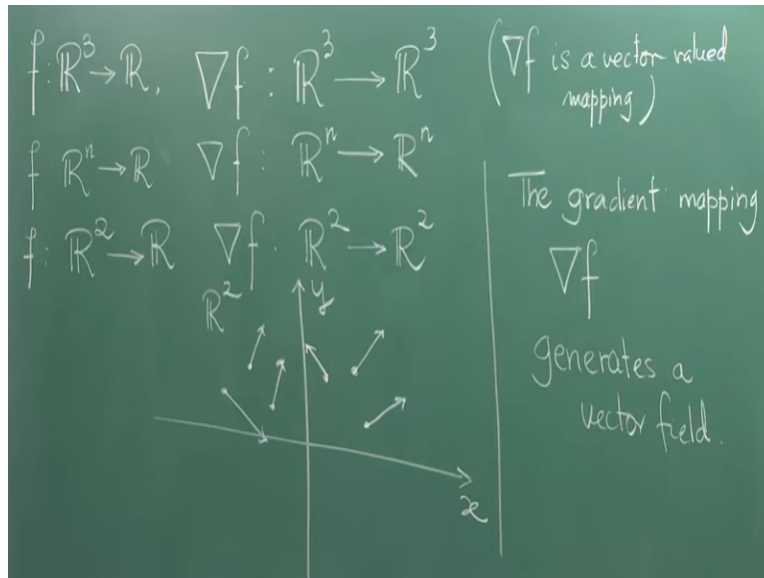 f: ℝ³ → ℝ, ∇f : ℝ³ → ℝ³
(∇f is a vector valued
mapping)
f ℝⁿ → ℝ ∇f : ℝⁿ → ℝⁿ
f: ℝ² → ℝ ∇f : ℝ² → ℝ²
ℝ²
y
x
The gradient mapping
∇f
generates a
vector field.